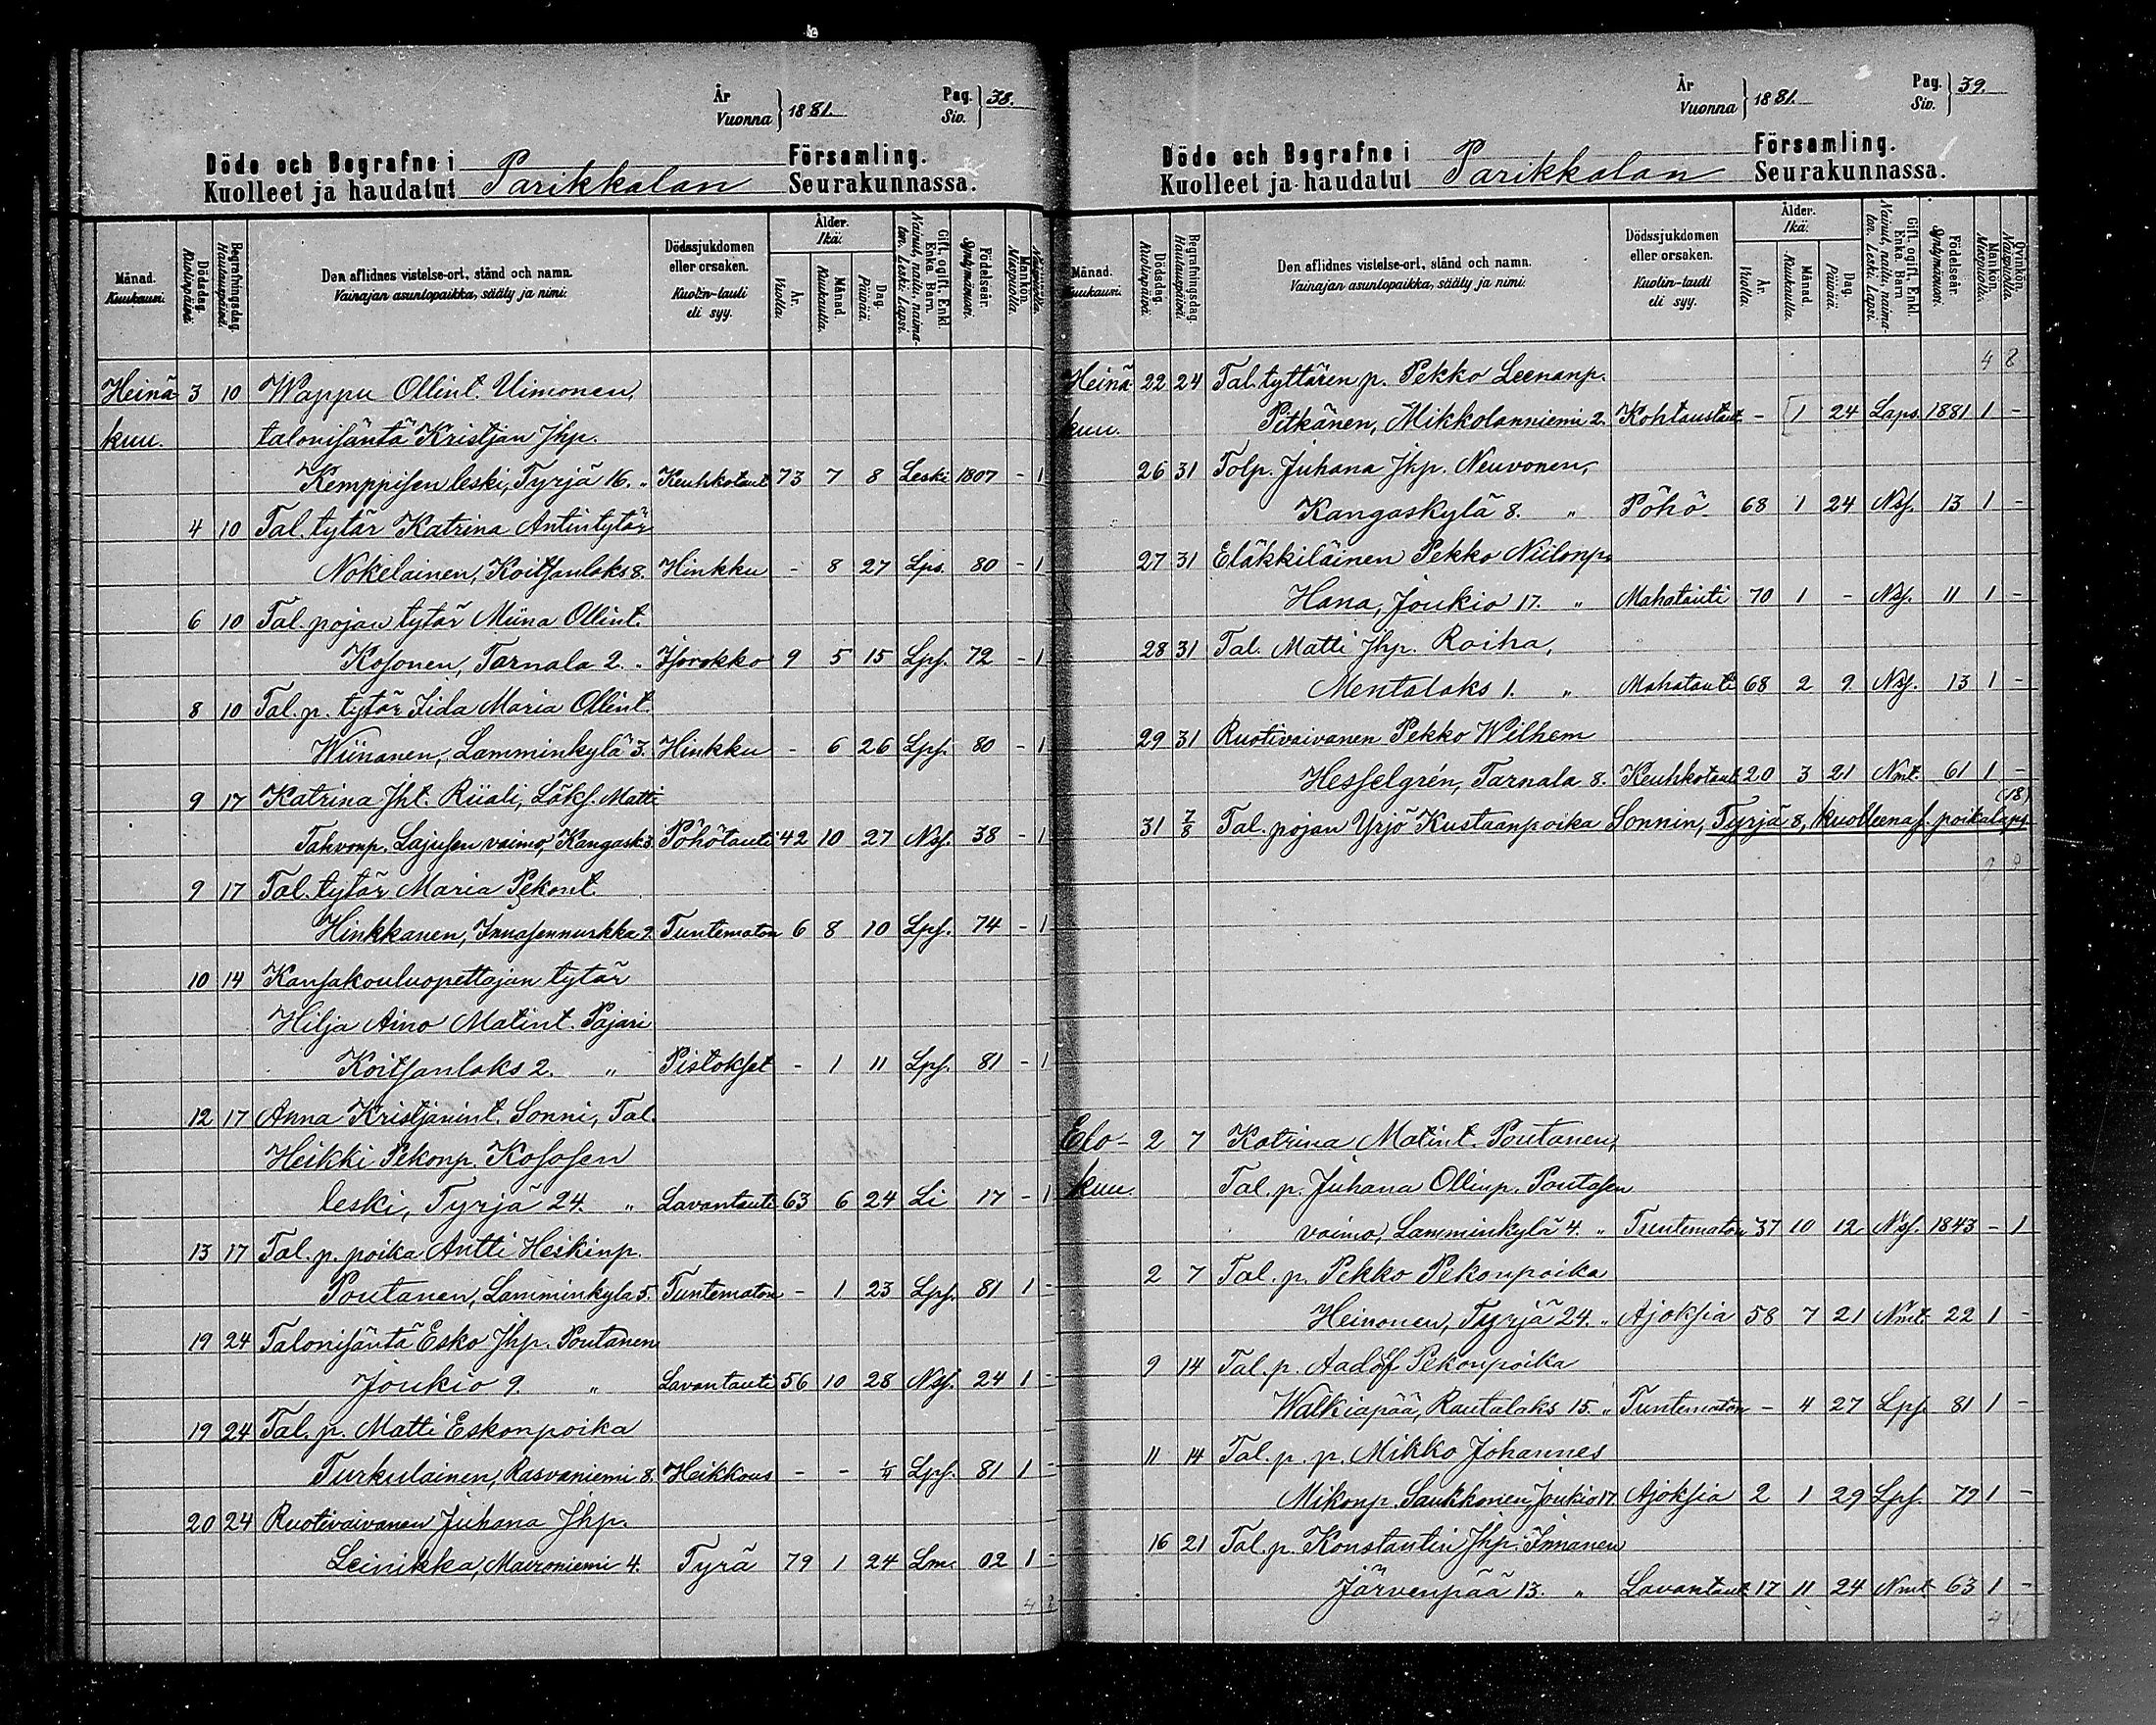 År Vuonna } 1881. Pag. Siv. } 38.
Döde och Begrafne i Församling.
Kuolleet ja haudatut Parikkalan Seurakunnassa.
Månad. Kuukausi. Dödsdag. Kuolinpäivä. Begrafningsdag. Hautauspäivä. Den aflidnes vistelse-ort, stånd och namn. Vainajan asuntopaikka, sääty ja nimi. Dödssjukdomen eller orsaken. Kuolin-tauti eli syy. Ålder. Ikä. År. Vuotta. Månad. Kuukautta. Dag. Päivää. Gift, ogift, Enkl. Enka, Barn. Nainut, naitu, naimaton. Leski. Lapsi. Födelseår. Syntymävuosi. Mankön. Miespuolta.
Heinä 3 10 Wappu Ollint. Uimonen,
kuu. talonisäntä Kristjan Jhp.
Kemppisen leski, Tyrjä 16. " Keuhkotaut 73 7 8 Leski 1807 - 1
4 10 Tal. tytär Katrina Antintytär
Nokelainen, Koitsanlaks 8. Hinkku - 8 27 Lps. 80 - 1
6 10 Tal. pojan tytär Miina Ollint.
Kosonen, Tarnala 2. " Isorokko 9 5 15 Lps. 72 - 1
8 10 Tal. p. tytär Iida Maria Ollint.
Wiinanen, Lamminkylä 3. Hinkku - 6 26 Lps. 80 - 1
9 17 Katrina Jht. Riiali, Läks. Matti
Tahvonp. Lajusen vaimo, Kangask. 3. Pöhötauti 42 10 27 Nsf. 38 - 1
9 17 Tal. tytär Maria Pekont.
Hinkkanen, Innasennurkka 9. Tuntematon 6 8 10 Lps. 74 - 1
10 14 Kansakouluopettajan tytär
Hilja Aino Matint. Pajari
Koitsanlaks 2. " Pistokset - 1 11 Lps. 81 - 1
12 17 Anna Kristjanint. Sonni, Tal.
Heikki Pekonp. Kososen
leski, Tyrjä 24. " Lavantauti 63 6 24 Li 17 - 1
13 17 Tal. p. poika Antti Heikinp.
Poutanen, Lamminkylä 5. Tuntematon - 1 23 Lps. 81 1 -
19 24 Talonisäntä Esko Jhp. Poutanen
Joukio 9. " Lavantauti 56 10 28 Nsf. 24 1 -
19 24 Tal. p. Matti Eskonpoika
Turkulainen, Rasvaniemi 8. Heikkous - - ¼ Lps. 81 1 -
20 24 Ruotivaivanen Juhana Jhp.
Leinikka, Maironiemi 4. Tyrä 79 1 24 Lm. 02 1 -
4 8
År Vuonna } 1881. Pag. Siv. } 39.
Döde och Begrafne i Församling.
Kuolleet ja haudatut Parikkalan Seurakunnassa.
Månad. Kuukausi. Dödsdag. Kuolinpäivä. Begrafningsdag. Hautauspäivä. Den aflidnes vistelse-ort, stånd och namn. Vainajan asuntopaikka, sääty ja nimi. Dödssjukdomen eller orsaken. Kuolin-tauti eli syy. Ålder. Ikä. År. Vuotta. Månad. Kuukautta. Dag. Päivää. Gift, ogift, Enkl. Enka, Barn. Nainut, naitu, naimaton. Leski. Lapsi. Födelseår. Syntymävuosi. Mankön. Miespuolta. Qvinkön. Naispuolta.
4 8
Heinä 22 24 Tal. tyttären p. Pekko Leenanp.
kuu. Pitkänen, Mikkolanniemi 2. Kohtaustaut - 1 24 Laps. 1881 1 -
26 31 Tolp. Juhana Jhp. Neuvonen,
Kangaskylä 8. " Pöhö 68 1 24 Nsf. 13 1 -
27 31 Eläkkiläinen Pekko Niilonp.
Hana, Joukio 17. " Mahatauti 70 1 - Nsf. 11 1 -
28 31 Tal. Matti Jhp. Raiha,
Mentalaks 1. " Mahatauti 68 2 9 Nsf. 13 1 -
29 31 Ruotivaivanen Pekko Wilhem
Hesselgrén, Tarnala 8. Keuhkotaut 20 3 21 Nmt. 61 1 -
31 7/8 Tal. pojan Yrjö Kustaanpoika Sonnin, Tyrjä 8, kuolleenas. poikalaps (18)
Elo- 2 7 Katrina Matint. Poutanen,
kuu. Tal. p. Juhana Ollinp. Poutasen
vaimo, Lamminkylä 4. " Tuntematon 37 10 12 Nsf. 1843 - 1
2 7 Tal. p. Pekko Pekonpoika
Heinonen, Tyrjä 24. " Ajoksia 58 7 21 Nmt. 22 1 -
9 14 Tal. p. Aadolf Pekonpoika
Walkiapää, Rautalaks 15. " Tuntematon - 4 27 Lps. 81 1 -
11 14 Tal. p. p. Mikko Johannes
Mikonp. Saukkonen, Joukio 17 Ajoksia 2 1 29 Lps. 79 1 -
16 21 Tal. p. Konstantin Jhp. Innanen
Järvenpää 13. " Lavantaut 17 11 24 Nmt. 63 1 -
4 1